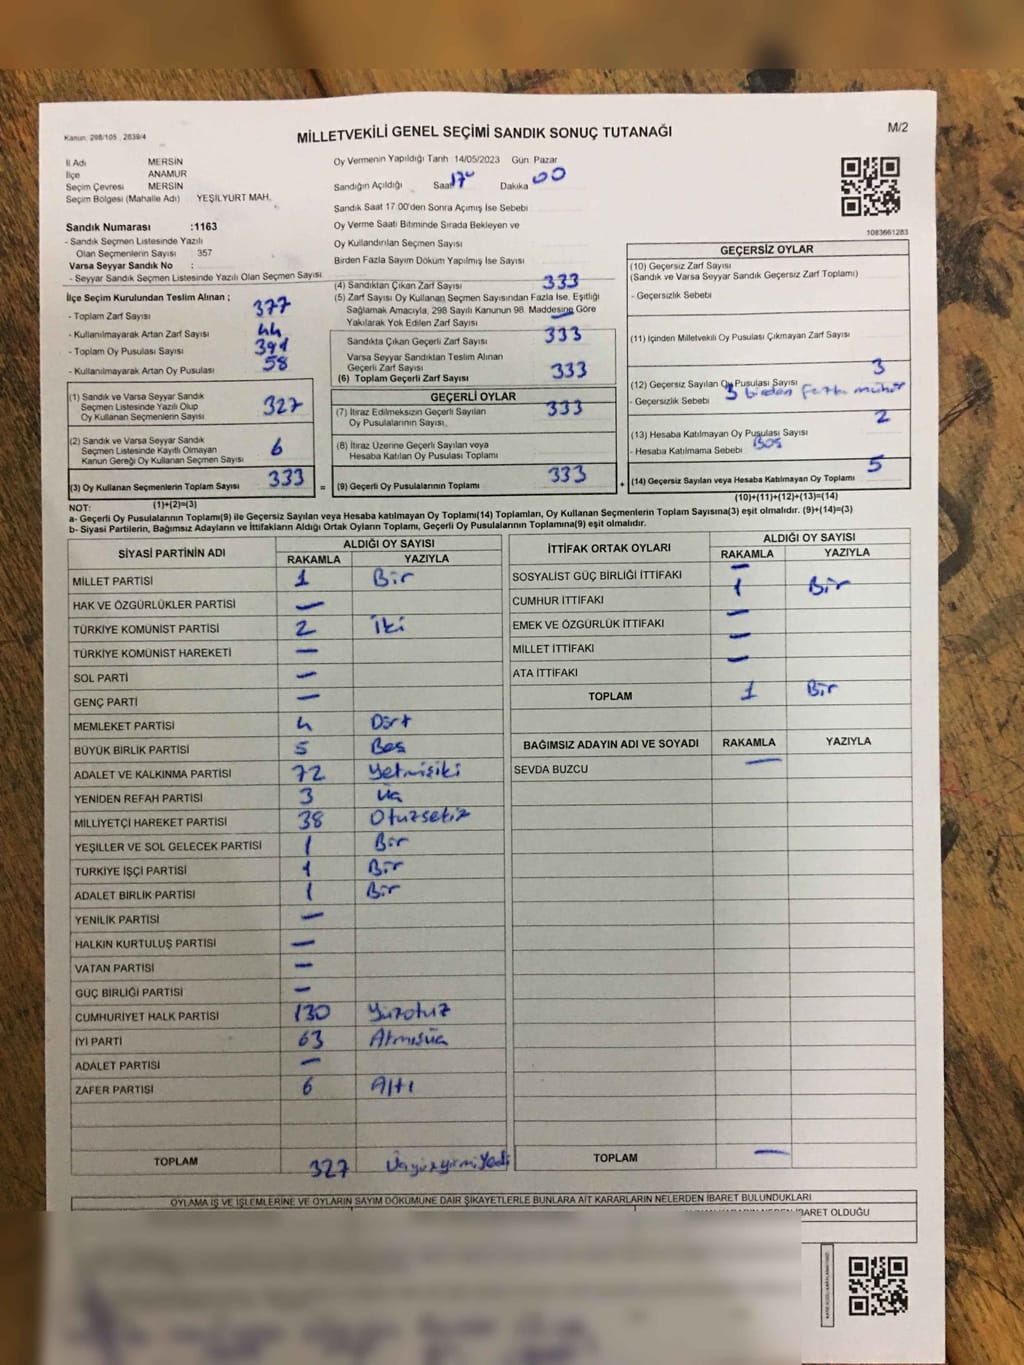 Kanun, 298/105 , 2839/4
MİLLETVEKİLİ GENEL SEÇİMİ SANDIK SONUÇ TUTANAĞI
M/2
İl Adı MERSİN
İlçe ANAMUR
Seçim Çevresi MERSİN
Seçim Bölgesi (Mahalle Adı) YEŞİLYURT MAH.
Sandık Numarası :1163
- Sandık Seçmen Listesinde Yazılı
Olan Seçmenlerin Sayısı 357
Varsa Seyyar Sandık No :
- Seyyar Sandık Seçmen Listesinde Yazılı Olan Seçmen Sayısı
Oy Vermenin Yapıldığı Tarih 14/05/2023 Gün Pazar
Sandığın Açıldığı Saat 17 Dakika 00
Sandık Saat 17.00'den Sonra Açımış İse Sebebi
Oy Verme Saati Bitiminde Sırada Bekleyen ve
Oy Kullandırılan Seçmen Sayısı
Birden Fazla Sayım Döküm Yapılmış İse Sayısı
1083661283
İlçe Seçim Kurulundan Teslim Alınan ;
- Toplam Zarf Sayısı 377
- Kullanılmayarak Artan Zarf Sayısı 44
- Toplam Oy Pusulası Sayısı 391
- Kullanılmayarak Artan Oy Pusulası 58
(1) Sandık ve Varsa Seyyar Sandık
Seçmen Listesinde Yazılı Olup
Oy Kullanan Seçmenlerin Sayısı 327
(2) Sandık ve Varsa Seyyar Sandık
Seçmen Listesinde Kayıtlı Olmayan
Kanun Gereği Oy Kullanan Seçmen Sayısı 6
(3) Oy Kullanan Seçmenlerin Toplam Sayısı 333 =
(1)+(2)=(3)
(4) Sandıktan Çıkan Zarf Sayısı 333
(5) Zarf Sayısı Oy Kullanan Seçmen Sayısından Fazla İse, Eşitliği
Sağlamak Amacıyla, 298 Sayılı Kanunun 98. Maddesine Göre
Yakılarak Yok Edilen Zarf Sayısı —
Sandıkta Çıkan Geçerli Zarf Sayısı 333
Varsa Seyyar Sandıktan Teslim Alınan
Geçerli Zarf Sayısı
(6) Toplam Geçerli Zarf Sayısı 333
GEÇERLİ OYLAR
(7) İtiraz Edilmeksizin Geçerli Sayılan
Oy Pusulalarının Sayısı 333
(8) İtiraz Üzerine Geçerli Sayılan veya
Hesaba Katılan Oy Pusulası Toplamı
(9) Geçerli Oy Pusulalarının Toplamı 333 +
GEÇERSİZ OYLAR
(10) Geçersiz Zarf Sayısı
(Sandık ve Varsa Seyyar Sandık Geçersiz Zarf Toplamı)
- Geçersizlik Sebebi
(11) İçinden Milletvekili Oy Pusulası Çıkmayan Zarf Sayısı
(12) Geçersiz Sayılan Oy Pusulası Sayısı 3
- Geçersizlik Sebebi 3 birden fazla mühür
(13) Hesaba Katılmayan Oy Pusulası Sayısı 2
- Hesaba Katılmama Sebebi Boş
(14) Geçersiz Sayılan veya Hesaba Katılmayan Oy Toplamı 5
(10)+(11)+(12)+(13)=(14)
NOT:
a- Geçerli Oy Pusulalarının Toplamı(9) ile Geçersiz Sayılan veya Hesaba katılmayan Oy Toplamı(14) Toplamları, Oy Kullanan Seçmenlerin Toplam Sayısına(3) eşit olmalıdır. (9)+(14)=(3)
b- Siyasi Partilerin, Bağımsız Adayların ve İttifakların Aldığı Ortak Oyların Toplamı, Geçerli Oy Pusulalarının Toplamına(9) eşit olmalıdır.
SİYASİ PARTİNİN ADI ALDIĞI OY SAYISI
RAKAMLA YAZIYLA
MİLLET PARTİSİ 1 Bir
HAK VE ÖZGÜRLÜKLER PARTİSİ —
TÜRKİYE KOMÜNİST PARTİSİ 2 İki
TÜRKİYE KOMÜNİST HAREKETİ —
SOL PARTİ —
GENÇ PARTİ —
MEMLEKET PARTİSİ 4 Dört
BÜYÜK BİRLİK PARTİSİ 5 Beş
ADALET VE KALKINMA PARTİSİ 72 Yetmişiki
YENİDEN REFAH PARTİSİ 3 Üç
MİLLİYETÇİ HAREKET PARTİSİ 38 Otuzsekiz
YEŞİLLER VE SOL GELECEK PARTİSİ 1 Bir
TÜRKİYE İŞÇİ PARTİSİ 1 Bir
ADALET BİRLİK PARTİSİ 1 Bir
YENİLİK PARTİSİ —
HALKIN KURTULUŞ PARTİSİ —
VATAN PARTİSİ —
GÜÇ BİRLİĞİ PARTİSİ —
CUMHURİYET HALK PARTİSİ 130 Yüzotuz
İYİ PARTİ 63 Atmışüç
ADALET PARTİSİ —
ZAFER PARTİSİ 6 Altı
TOPLAM 327 Üçyüzyirmiyedi
İTTİFAK ORTAK OYLARI ALDIĞI OY SAYISI
RAKAMLA YAZIYLA
SOSYALİST GÜÇ BİRLİĞİ İTTİFAKI —
CUMHUR İTTİFAKI 1 Bir
EMEK VE ÖZGÜRLÜK İTTİFAKI —
MİLLET İTTİFAKI —
ATA İTTİFAKI —
TOPLAM 1 Bir
BAĞIMSIZ ADAYIN ADI VE SOYADI RAKAMLA YAZIYLA
SEVDA BUZCU —
TOPLAM —
OYLAMA İŞ VE İŞLEMLERİNE VE OYLARIN SAYIM DÖKÜMÜNE DAİR ŞİKAYETLERLE BUNLARA AİT KARARLARIN NELERDEN İBARET BULUNDUKLARI
İBARET OLDUĞU